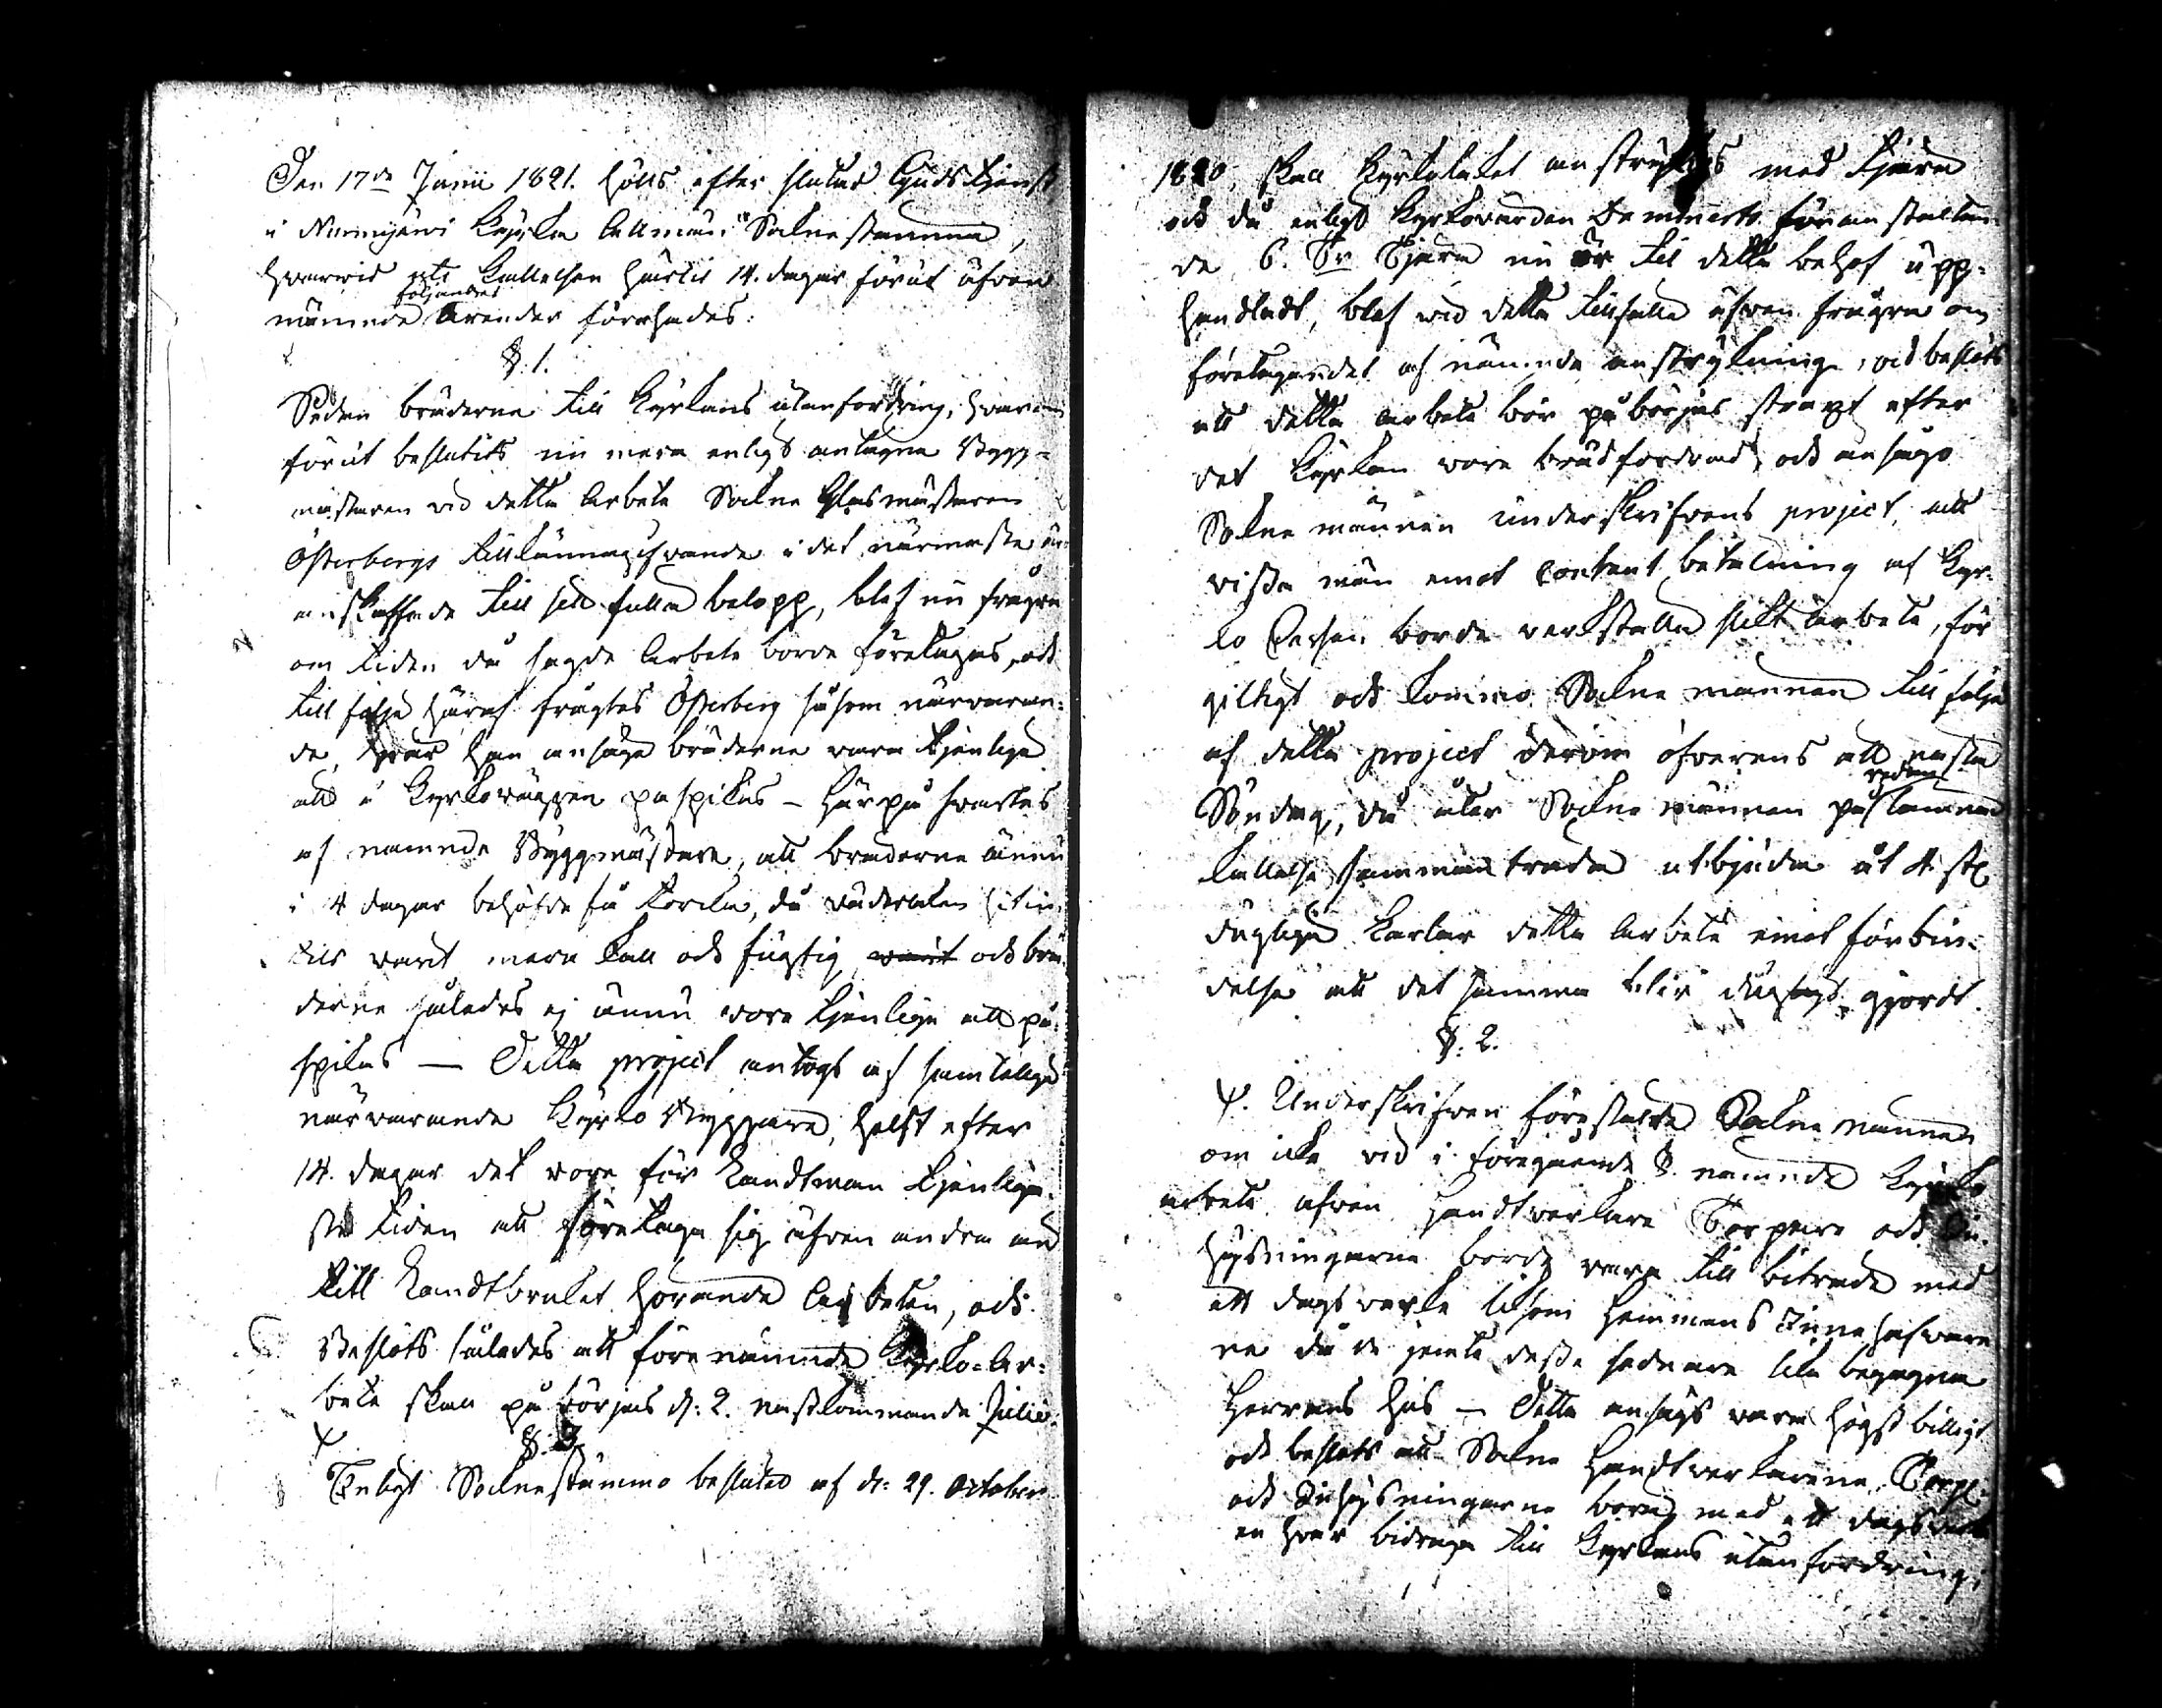 Den 17de Junii 1821. hölts efter slutad Gudstjenst
i Nurmijärvi Kyrka allmän Soknestämma,
hvarvid uti Kallelsen härtil 14. dagar förut äfven
nämnde följande Ärender förehades:
§. 1.
Sedan bräderne till Kyrkans utanfordring, hvarom
förut beslutits nu mera enligt antagne Bygg-
mästaren vid detta Arbete Sokne Glasmästaren
Österbergs tillkännagifvande i det närmaste är
anskaffade till sitt fulla belopp, blef nu frågan
om tiden då sagde Arbete borde företagas, och
till följe häraf frågtes Österberg såsom närvaran-
de, när han ansåge bräderne vara tjenlige
att å Kyrkoväggen påspikas – härpå svartes
af nämnde Byggmästare, att bräderne ännu
i 4 dagar behöfde få torcka, då väderleken hitin-
tils varit mera kall och fugtig varit och brä-
derne således ej ännu vore tjenlige att på-
spikas — Detta project antogs af samtelige
närvarande Kyrko Byggare, helst efter
14. dagar det vore för Landtman tjenliga-
ste tiden att företaga sig äfven andra än
till Landtbruket hörande Arbeten, och
Beslöts således att förenämnde Kyrko-Ar-
bete skall på börjas d: 2. nästkommande Julii.
§. 3.
Enligt Soknestämmo beslutet af d: 29. October
1820, skall Kyrkotaket anstrykas med tjära
och då enligt Kyrkovärden Damberts föranstaltan-
de 6. Tr Tjära nu är till detta behof upp-
handladt, blef vid detta tillfälle äfven frågan om
företagandet af nämnde anstrykning, och beslöts
att detta Arbete bör påbörjas straxt efter
det Kyrkan vore brädfordrad, och ansågo
Sokne männen underskrifvens project, att
vissa män emot contant betalning af Kyr-
ko Cassan borde verkställa slikt Arbete, för
gilligt och kommo Sokne männen till följe
af detta project derom öfverens att nästa
Söndag, då åter Sokne männen på redan lemnad
kallelse sammanträda utbjuda åt 4 st.
dugtige Karlar detta Arbete emot förbin-
delse att det samma blir dugtigt gjordt.
§. 2.
Underskrifven föreställte Sokne männen
om icke vid i föregående §. nämnde Kyrko
arbete äfven Handtverkare Torpare och In-
hysningarne borde vara till biträde med
ett dagsverke liksom Hemmans Innehafvare
ne då de jemte desse sednare lika begagna
Herrans Hus — Detta ansågs vara högst billigt
och beslöts att Sokne Handtverkarena, Torp.
och Inhysningarne borde med ett dagsverke
en hvar bidraga till Kyrkans utanfordring,